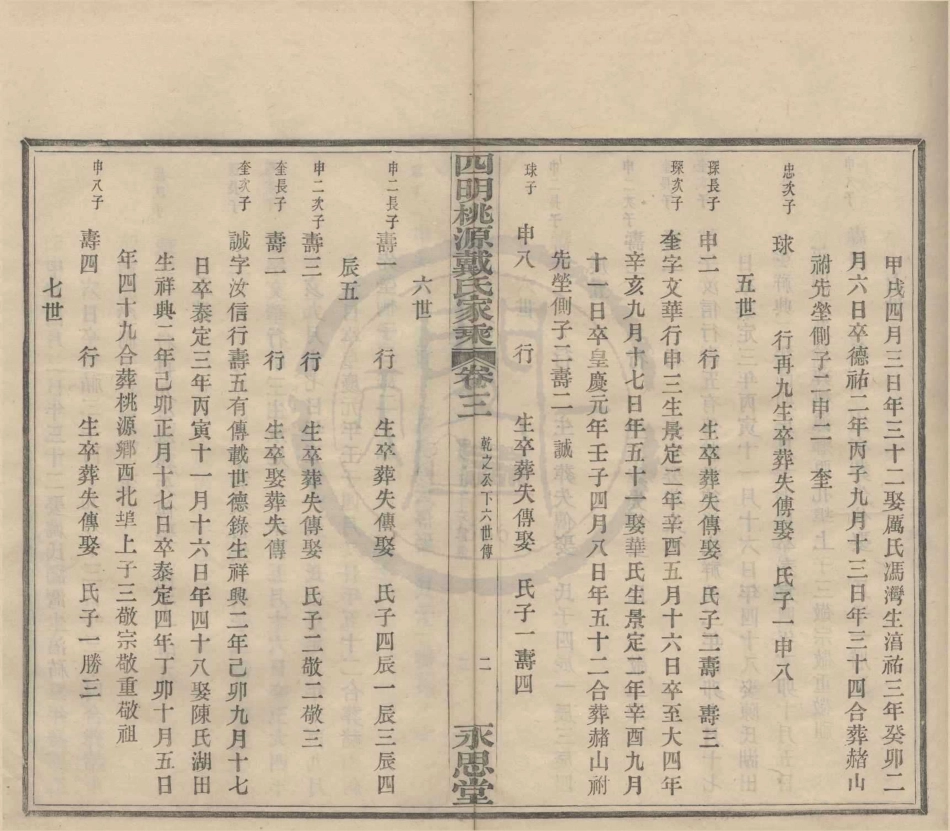 甲戌四月三日年三十二娶厲氏馮灣生淳祐三年癸卯二
月六日卒德祐二年丙子九月十三日年三十四合葬赭山
祔先塋側子二申二 奎
忠次子 球 行再九生卒葬失傳娶 氏子一申八
五世
琛長子 申二 行 生卒葬失傳娶 氏子二壽二壽三
琛次子 奎字文華行申三生景定二年辛酉五月十六日卒至大四年
辛亥九月十七日年五十一娶華氏生景定二年辛酉九月
十一日卒皇慶元年壬子四月八日年五十二合葬赭山祔
先塋側子二壽二 誠
球子 申八 行 生卒葬失傳娶 氏子一壽四
四明桃源戴氏家乘 卷三 乾之癸下六世傳 二 永思堂
六世
申二長子 壽一 行 生卒葬失傳娶 氏子四辰一辰三辰四
辰五
申二次子 壽三 行 生卒葬失傳娶 氏子二敬二敬三
奎長子 壽二 行 生卒娶葬失傳
奎次子 誠字汝信行壽五有傳載世德錄生祥興二年己卯九月十七
日卒泰定三年丙寅十一月十六日年四十八娶陳氏湖田
生祥興二年己卯正月十七日卒泰定四年丁卯十月五日
年四十九合葬桃源鄉西北埠上子三敬宗敬重敬祖
申八子 壽四 行 生卒葬失傳娶 氏子一勝三
七世